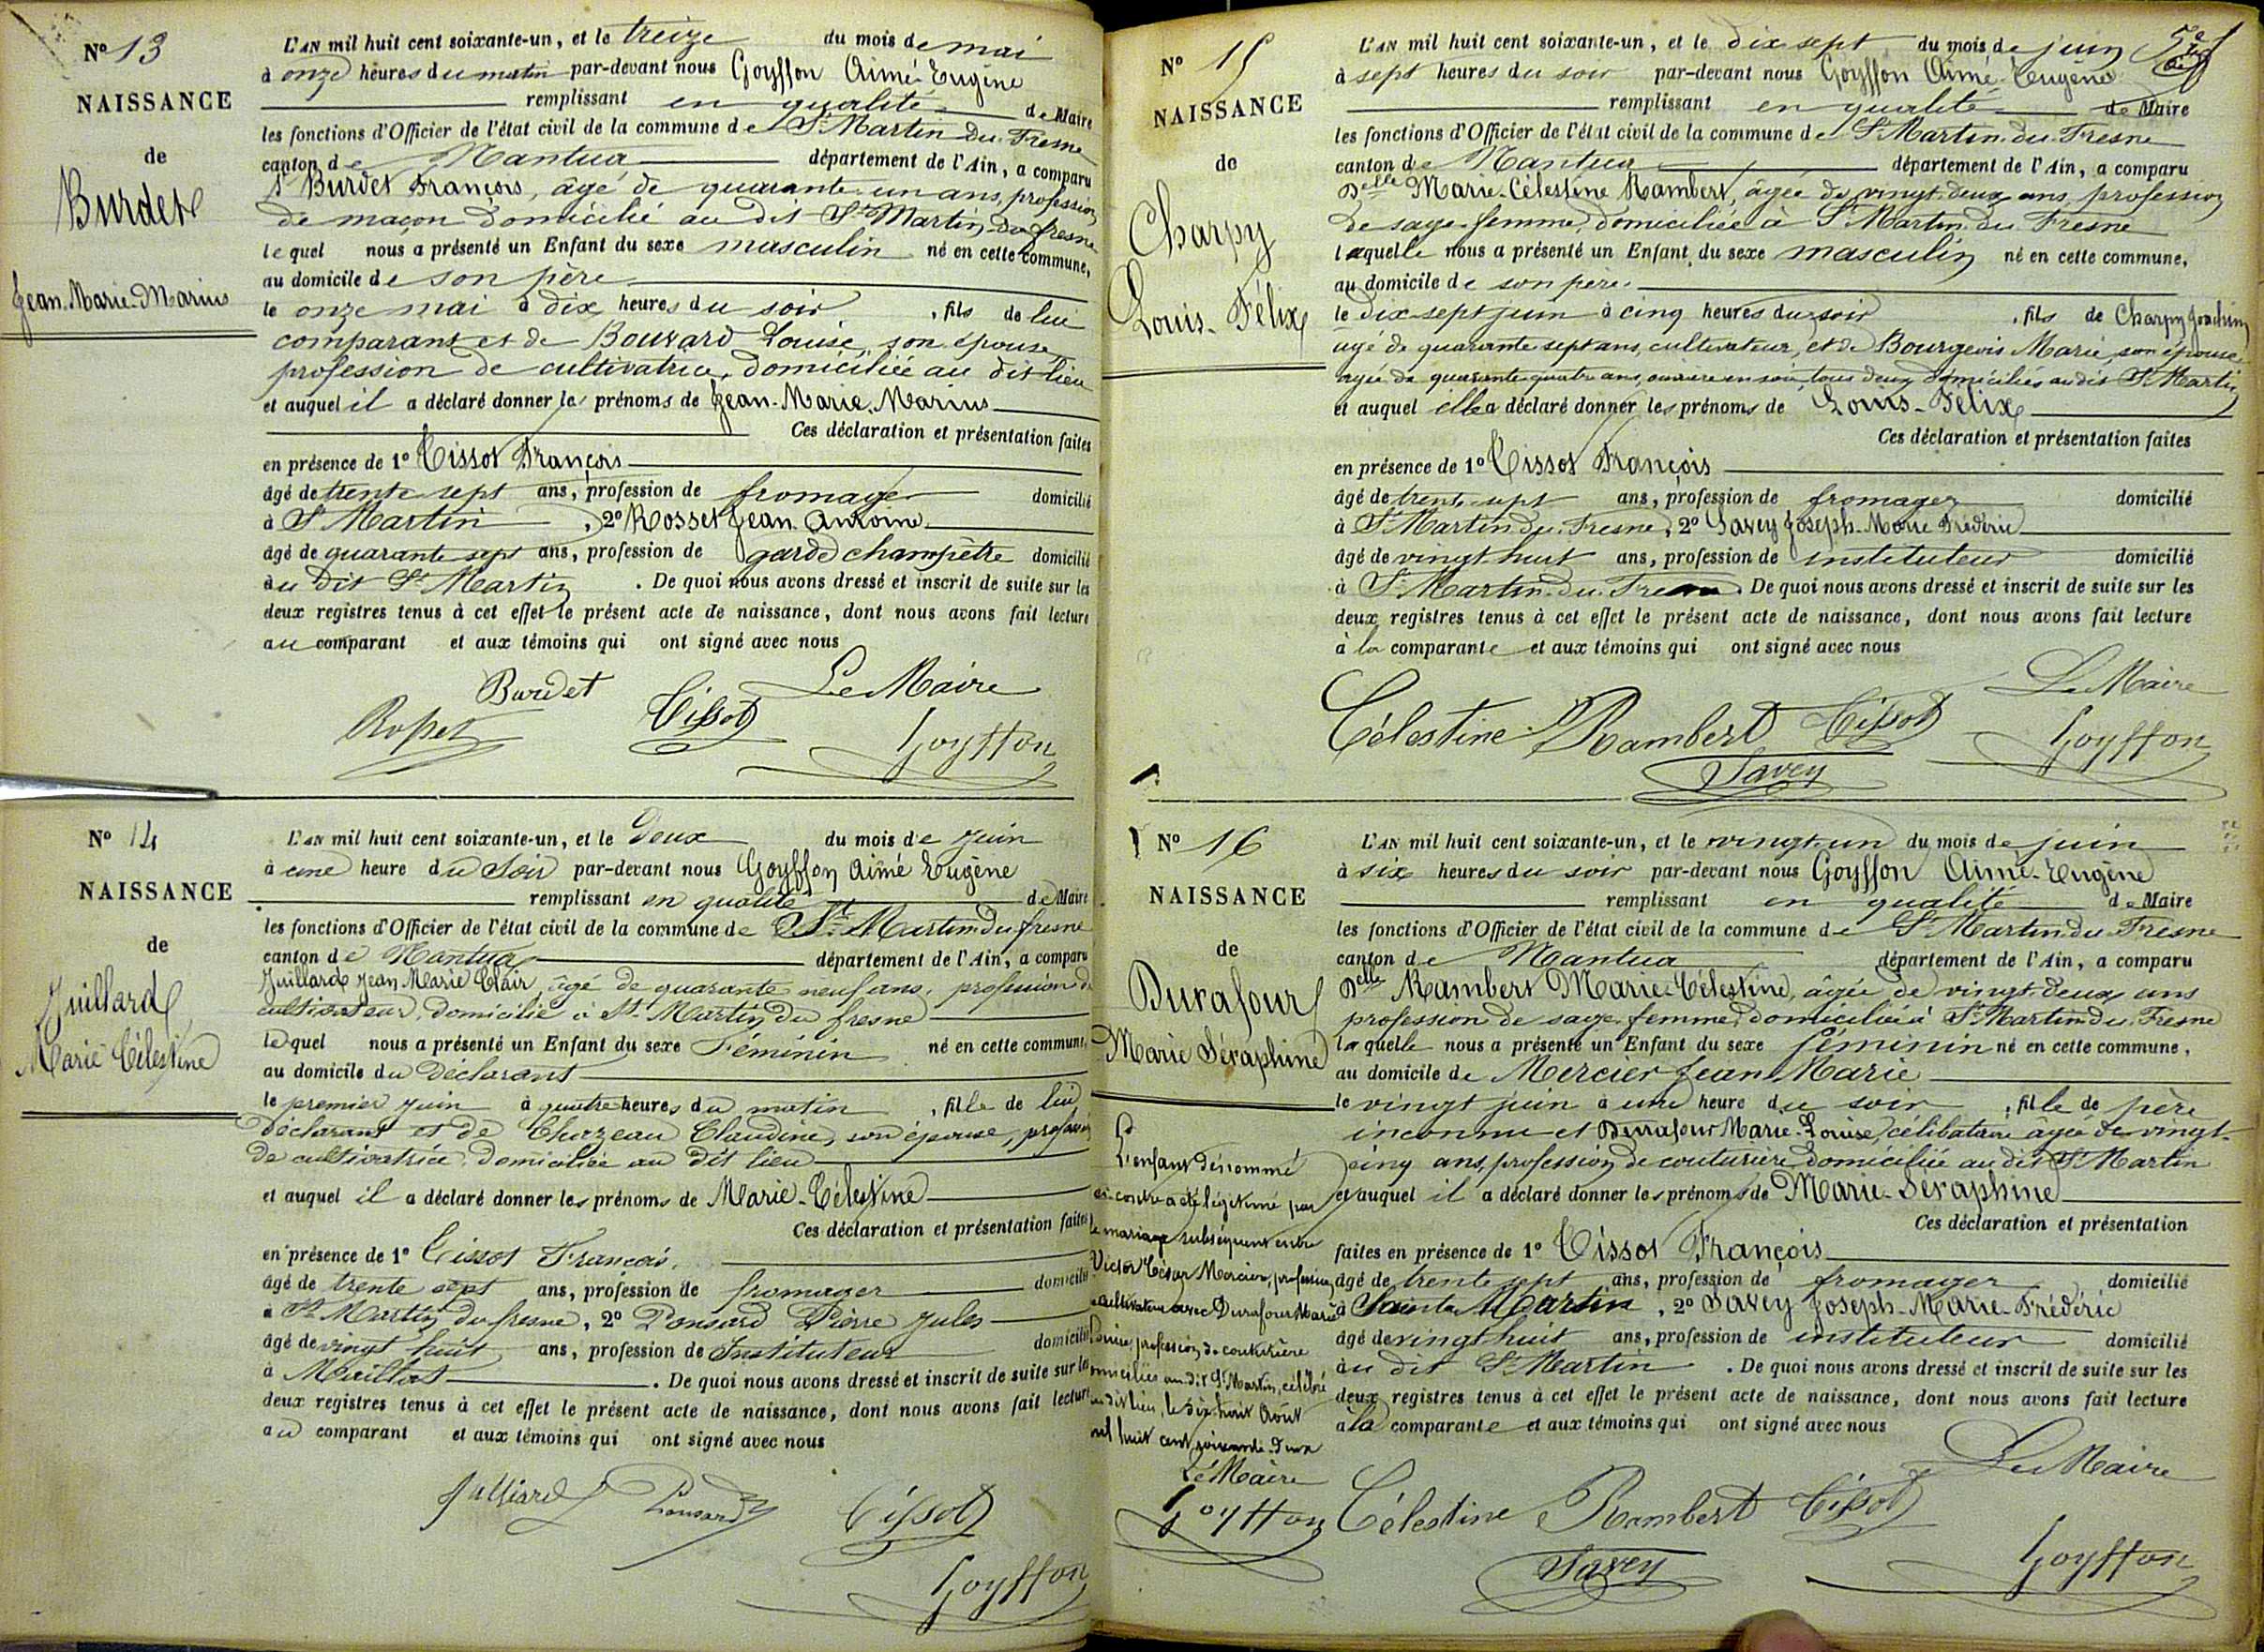 N° 13
NAISSANCE
de
Burdet
Jean-Marie-Marius
L'AN mil huit cent soixante-un, et le treize du mois de mai
à onze heures du matin par-devant nous Goyffon Aimé-Eugène
remplissant en qualité de Maire
les fonctions d'Officier de l'état civil de la commune de St Martin-du-Fresne
canton de Nantua département de l'Ain, a comparu
Sr Burdet François, âgé de quarante-un ans, profession
de maçon domicilié au dit St Martin-du-fresne
lequel nous a présenté un Enfant du sexe masculin né en cette commune,
au domicile de son père
le onze mai à dix heures du soir, fils de lui
comparant et de Bouvard Louise, son épouse,
profession de cultivatrice, domiciliée au dit lieu
et auquel il a déclaré donner les prénoms de Jean-Marie-Marius
Ces déclaration et présentation faites
en présence de 1° Tissot François
âgé de trente sept ans, profession de fromager domicilié
à St Martin, 2° Rosset Jean-Antoine
âgé de quarante sept ans, profession de garde champêtre domicilié
au dit St Martin. De quoi nous avons dressé et inscrit de suite sur les
deux registres tenus à cet effet le présent acte de naissance, dont nous avons fait lecture
au comparant et aux témoins qui ont signé avec nous
Burdet Le Maire
Rosset Tissot Goyffon
N° 14
NAISSANCE
de
Juillard
Marie Célestine
L'AN mil huit cent soixante-un, et le Deux du mois de juin
à une heure du Soir par-devant nous Goyffon Aimé Eugène
remplissant en qualité de Maire
les fonctions d'Officier de l'état civil de la commune de St Martin-du-fresne
canton de Nantua département de l'Ain, a comparu
Juillard Jean Marie Clair, âgé de quarante neuf ans, profession de
cultivateur, domicilié à St. Martin du fresne
lequel nous a présenté un Enfant du sexe Féminin né en cette commune,
au domicile du déclarant
le premier juin à quatre heures du matin, fille de lui
déclarant et de Claudine, son épouse, profession
de cultivatrice, domiciliée au dit lieu
et auquel il a déclaré donner les prénoms de Marie-Célestine
Ces déclaration et présentation faites
en présence de 1° Tissot François.
âgé de trente sept ans, profession de fromager domicilié
à St Martin du fresne, 2° Ponsard Pierre Jules
âgé de vingt huit ans, profession de Instituteur domicilié
à Maillat. De quoi nous avons dressé et inscrit de suite sur les
deux registres tenus à cet effet le présent acte de naissance, dont nous avons fait lecture
au comparant et aux témoins qui ont signé avec nous
Juillard Ponsard Tissot
Goyffon
N° 15
NAISSANCE
de
Charpy
Louis-Félix
L'AN mil huit cent soixante-un, et le dix sept du mois de juin
à sept heures du soir par-devant nous Goyffon Aimé-Eugène
remplissant en qualité de Maire
les fonctions d'Officier de l'état civil de la commune de St Martin-du-Fresne
canton de Nantua département de l'Ain, a comparu
Delle Marie-Célestine Rambert, âgée de vingt-deux ans, profession
de sage-femme, domiciliée à St Martin du Fresne
laquelle nous a présenté un Enfant du sexe masculin né en cette commune,
au domicile de son père.
le dix sept juin à cinq heures du soir, fils de Charpy Joachim
âgé de quarante sept ans, cultivateur, et de Bourgeois Marie, son épouse
âgée de quarante-quatre ans, ouvrière en soie, tous deux domiciliés au dit St Martin
et auquel elle a déclaré donner les prénoms de Louis-Félix
Ces déclaration et présentation faites
en présence de 1° Tissot François
âgé de trente-sept ans, profession de fromager domicilié
à St Martin du Fresne, 2° Savey Joseph-Marie Frédéric
âgé de vingt huit ans, profession de instituteur domicilié
à St Martin-du-Fresne. De quoi nous avons dressé et inscrit de suite sur les
deux registres tenus à cet effet le présent acte de naissance, dont nous avons fait lecture
à la comparante et aux témoins qui ont signé avec nous
Le Maire
Célestine Rambert Tissot Goyffon
Savey
N° 16
NAISSANCE
de
Durafour
Marie Séraphine
L'enfant dénommé
ci-contre a été légitimé par
le mariage subséquent entre
Victor César Mercier, profession
cultivateur avec Durafour Marie
Louise, profession de couturière
domiciliés au dit St Martin, célébré
au dit lieu, le dix-huit Août
mil huit cent soixante-deux
Le Maire
Goyffon
L'AN mil huit cent soixante-un, et le vingt-un du mois de juin
à six heures du soir par-devant nous Goyffon Aimé-Eugène
remplissant en qualité de Maire
les fonctions d'Officier de l'état civil de la commune de St Martin-du-Fresne
canton de Nantua département de l'Ain, a comparu
Delle Rambert Marie-Célestine, âgée de vingt-deux ans
profession de sage-femme, domiciliée à St Martin du Fresne
laquelle nous a présenté un Enfant du sexe féminin né en cette commune,
au domicile de Mercier Jean Marie
le vingt juin à une heure du soir, fille de père
inconnu et Durafour Marie-Louise, célibataire âgée de vingt-
cinq ans, profession de couturière domiciliée au dit St Martin
et auquel il a déclaré donner les prénoms de Marie-Séraphine
Ces déclaration et présentation
faites en présence de 1° Tissot François
âgé de trente sept ans, profession de fromager domicilié
à Saint Martin, 2° Savey Joseph-Marie-Frédéric
âgé de vingt huit ans, profession de instituteur domicilié
au dit St Martin. De quoi nous avons dressé et inscrit de suite sur les
deux registres tenus à cet effet le présent acte de naissance, dont nous avons fait lecture
à la comparante et aux témoins qui ont signé avec nous
Le Maire
Célestine Rambert Tissot
Savey Goyffon